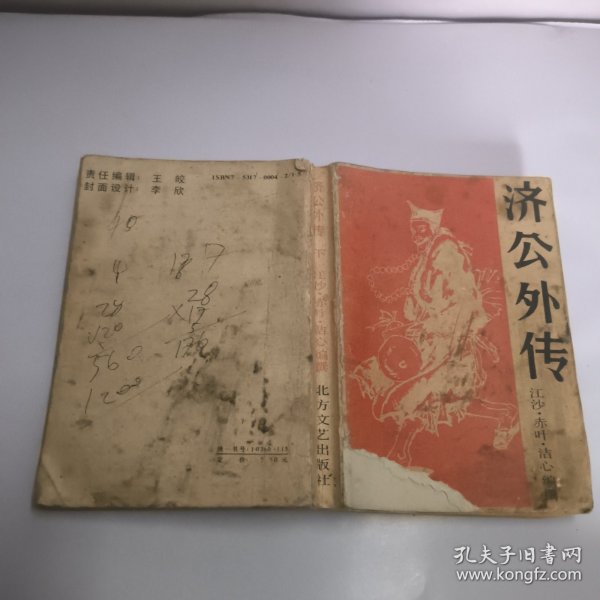 责任编辑：王 皎
封面设计：李 欣
ISBN7-5317-0004-2/I·5
10
4
28
120
560
1200
187
28
济公外传 下 江沙·赤叶·洁心编撰 北方文艺出版社
济公外传
江沙·赤叶·洁心编
孔夫子旧书网
www.kongfz.com